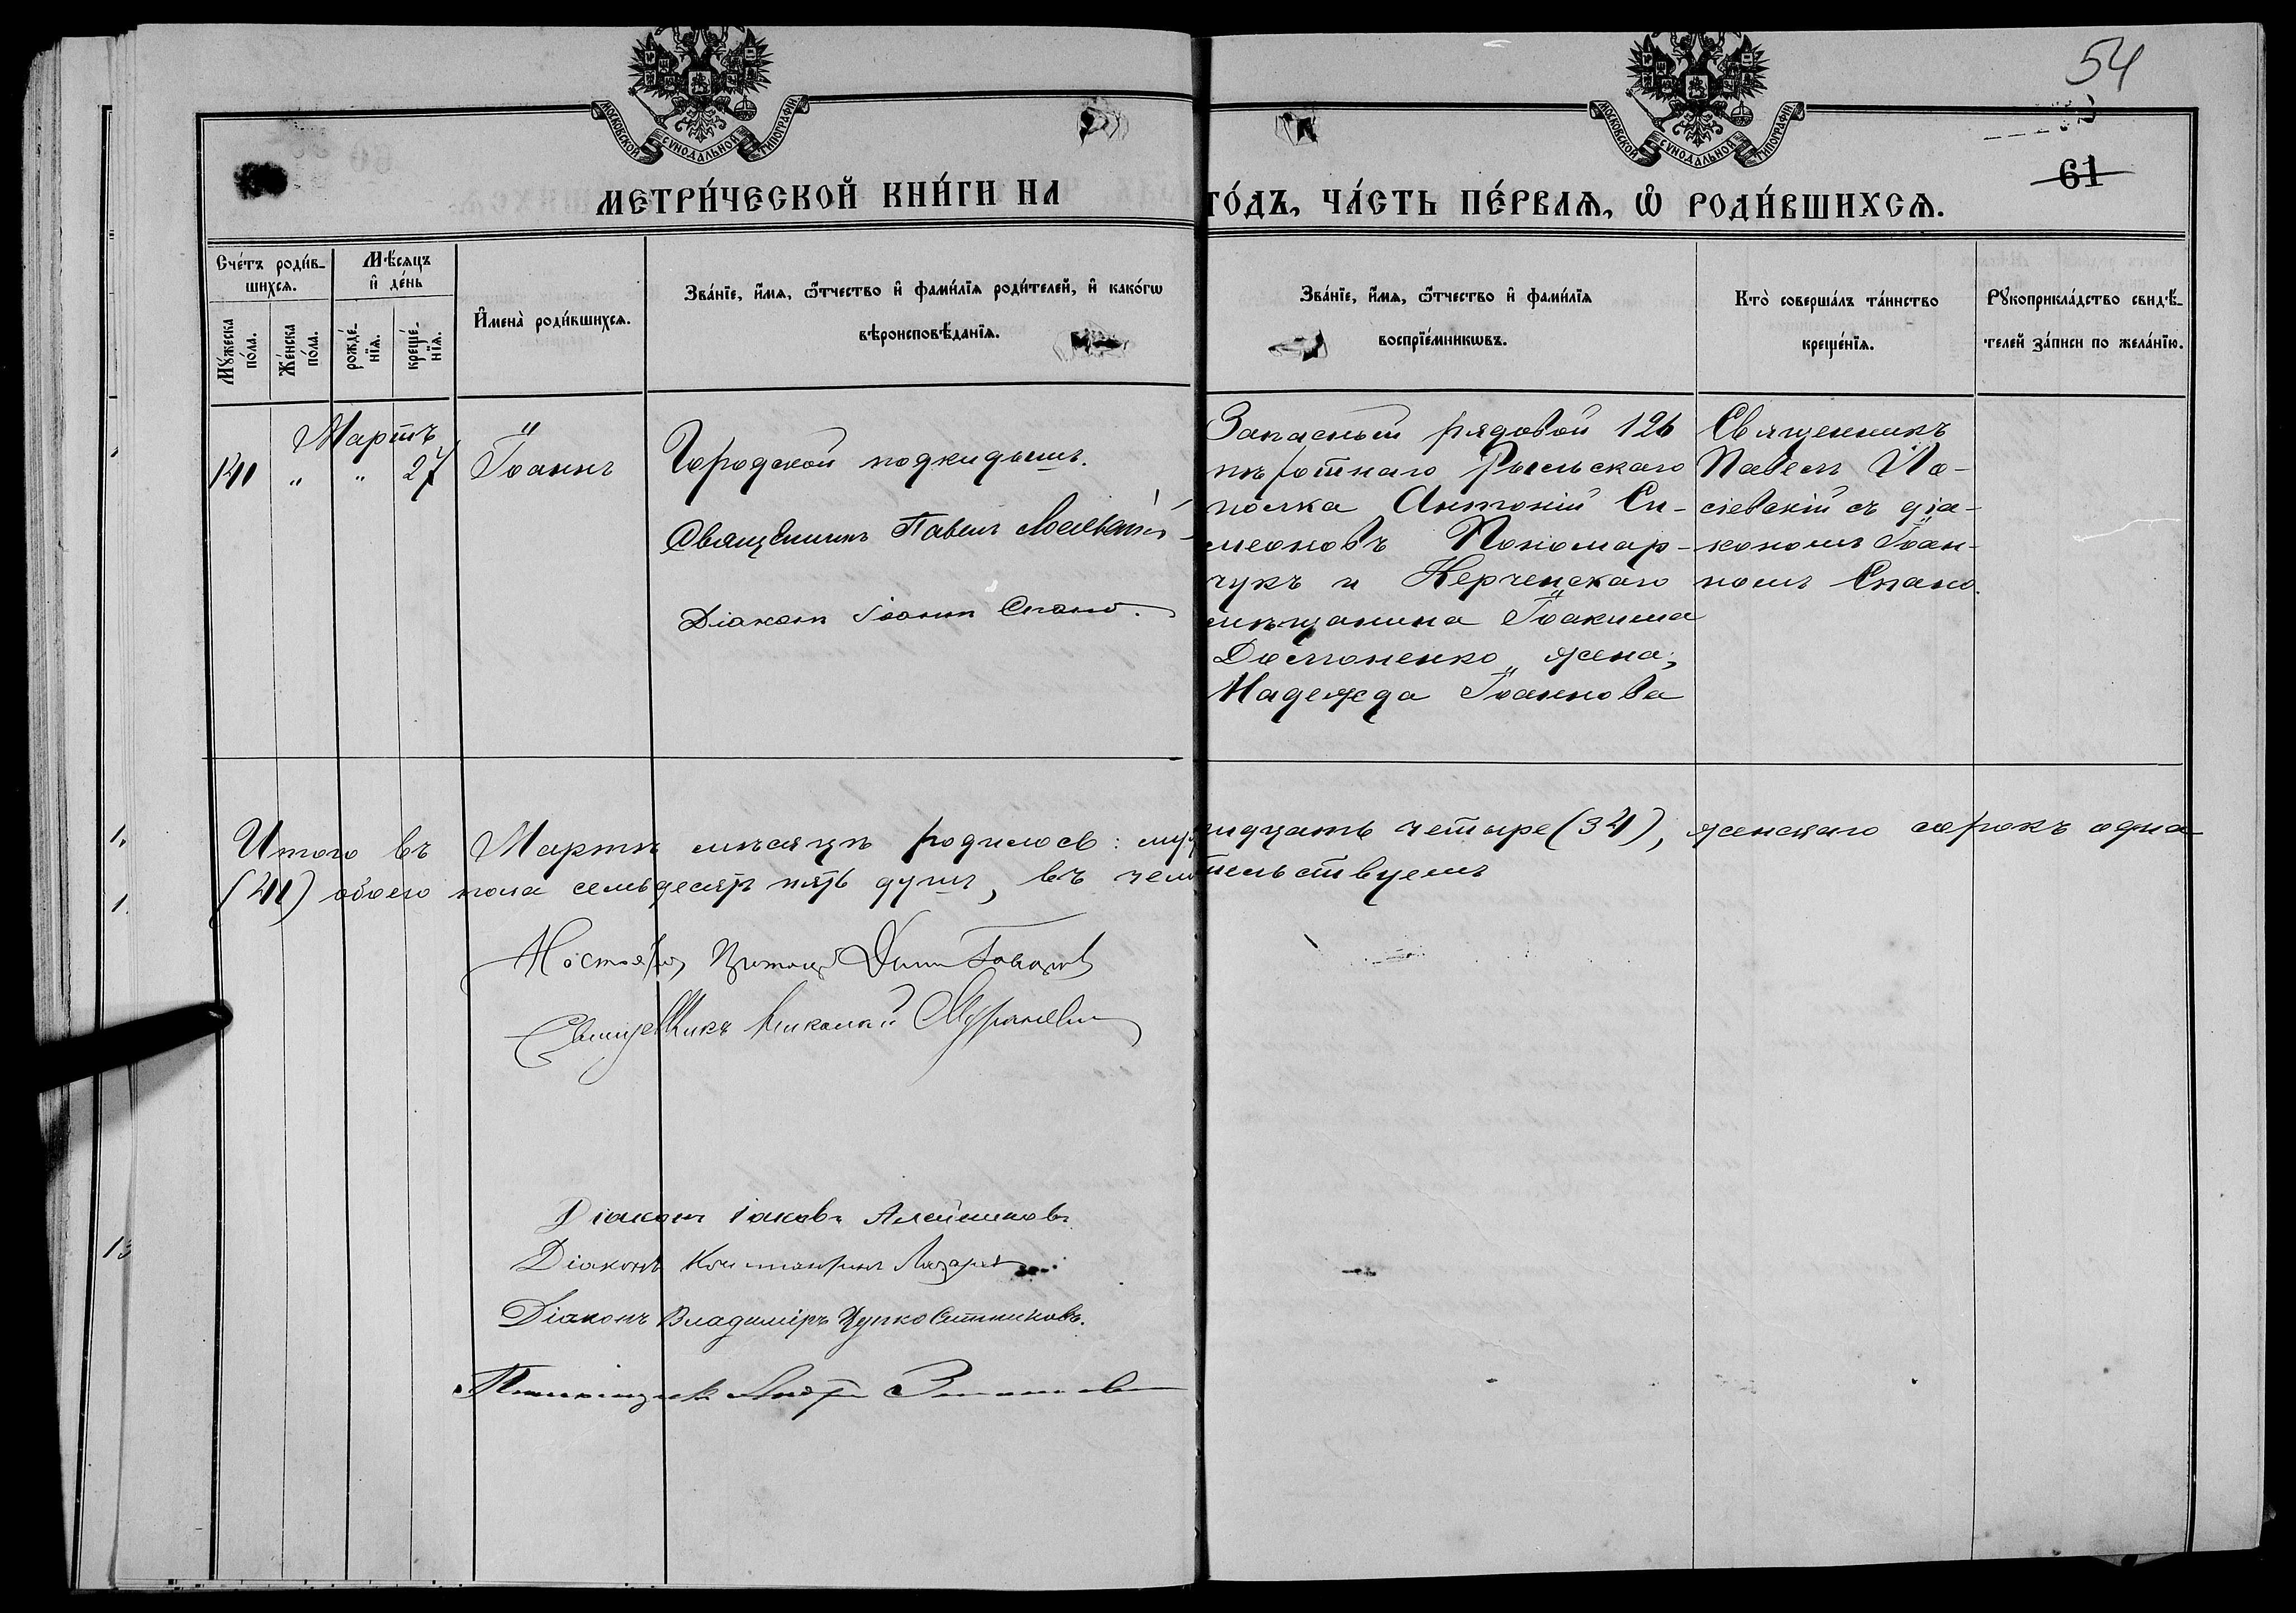 54
61
МОСКОВСКОЙ СѴНОДАЛЬНОЙ ТИПОГРАФІИ
МОСКОВСКОЙ СѴНОДАЛЬНОЙ ТИПОГРАФІИ
МЕТРИ́ЧЕСКОЙ КНИ́ГИ НА ГО́ДЪ, ЧА́СТЬ ПЕ́РВАѦ, Ѡ҆ РОДИ́ВШИХСѦ.
Сче́тъ роди́в-
шихсѧ.
Мꙋ́жеска
по́ла.
Же́нска
по́ла.
Мѣ́сѧцъ
и҆ де́нь
рожде́-
нїѧ.
креще́-
нїѧ.
И҆мена̀ роди́вшихсѧ.
Зва́нїе, и҆́мѧ, ѻ҆́тчество и҆ фами́лїѧ роди́телей, и҆ како́гѡ
вѣроисповѣ́данїѧ.
Зва́нїе, и҆́мѧ, ѻ҆́тчество и҆ фами́лїѧ
воспрїе́мникѡвъ.
Кто̀ соверша́лъ та́инство
креще́нїѧ.
Рꙋкоприкла́дство свидѣ́-
телей за́писи по жела́нїю.
Мартъ
140 " " 27
Іоаннъ
Городской подкидышъ.
Священникъ Павелъ
Діаконъ Іоаннъ Спано.
Запасный рядовой 126
пѣхотнаго Рыльскаго
полка Антоній Си-
меоновъ Пономар-
чукъ и Керченскаго
мѣщанина Іоакима
Долгоненко жена,
Надежда Іоаннова
Священникъ
Павелъ Ло-
сіевскій съ діа-
кономъ Іоан-
номъ Спано.
Итого въ Мартѣ мѣсяцѣ родилось: муж тридцать четыре (34), женскаго сорокъ одна
(41) обоего пола семьдесятъ пять душъ, въ чемъ тельствуемъ
Священникъ Николай
Діаконъ Іаковъ Алейниковъ.
Діаконъ Константинъ Лазарев
Діаконъ Владиміръ Цупко Ситниковъ.